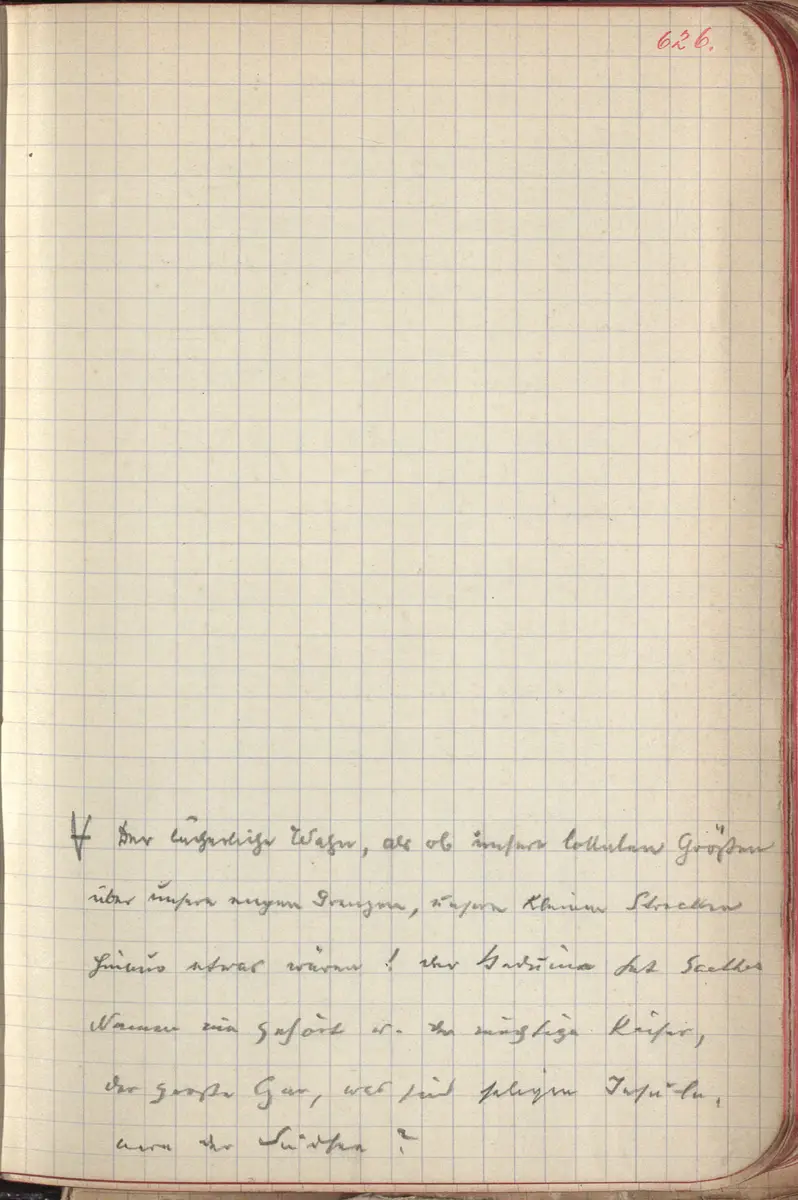 626.
Der lächerliche Wahn, als ob unsere lokalen Größen
über unsere engen Grenzen, unsere kleinen Strecken
hinaus etwas wären! der Beduine hat Goethes
Namen nie gehört u. der mächtige Kaiser,
der große Czar, was sind seligen Insula,
nern der Südsee?